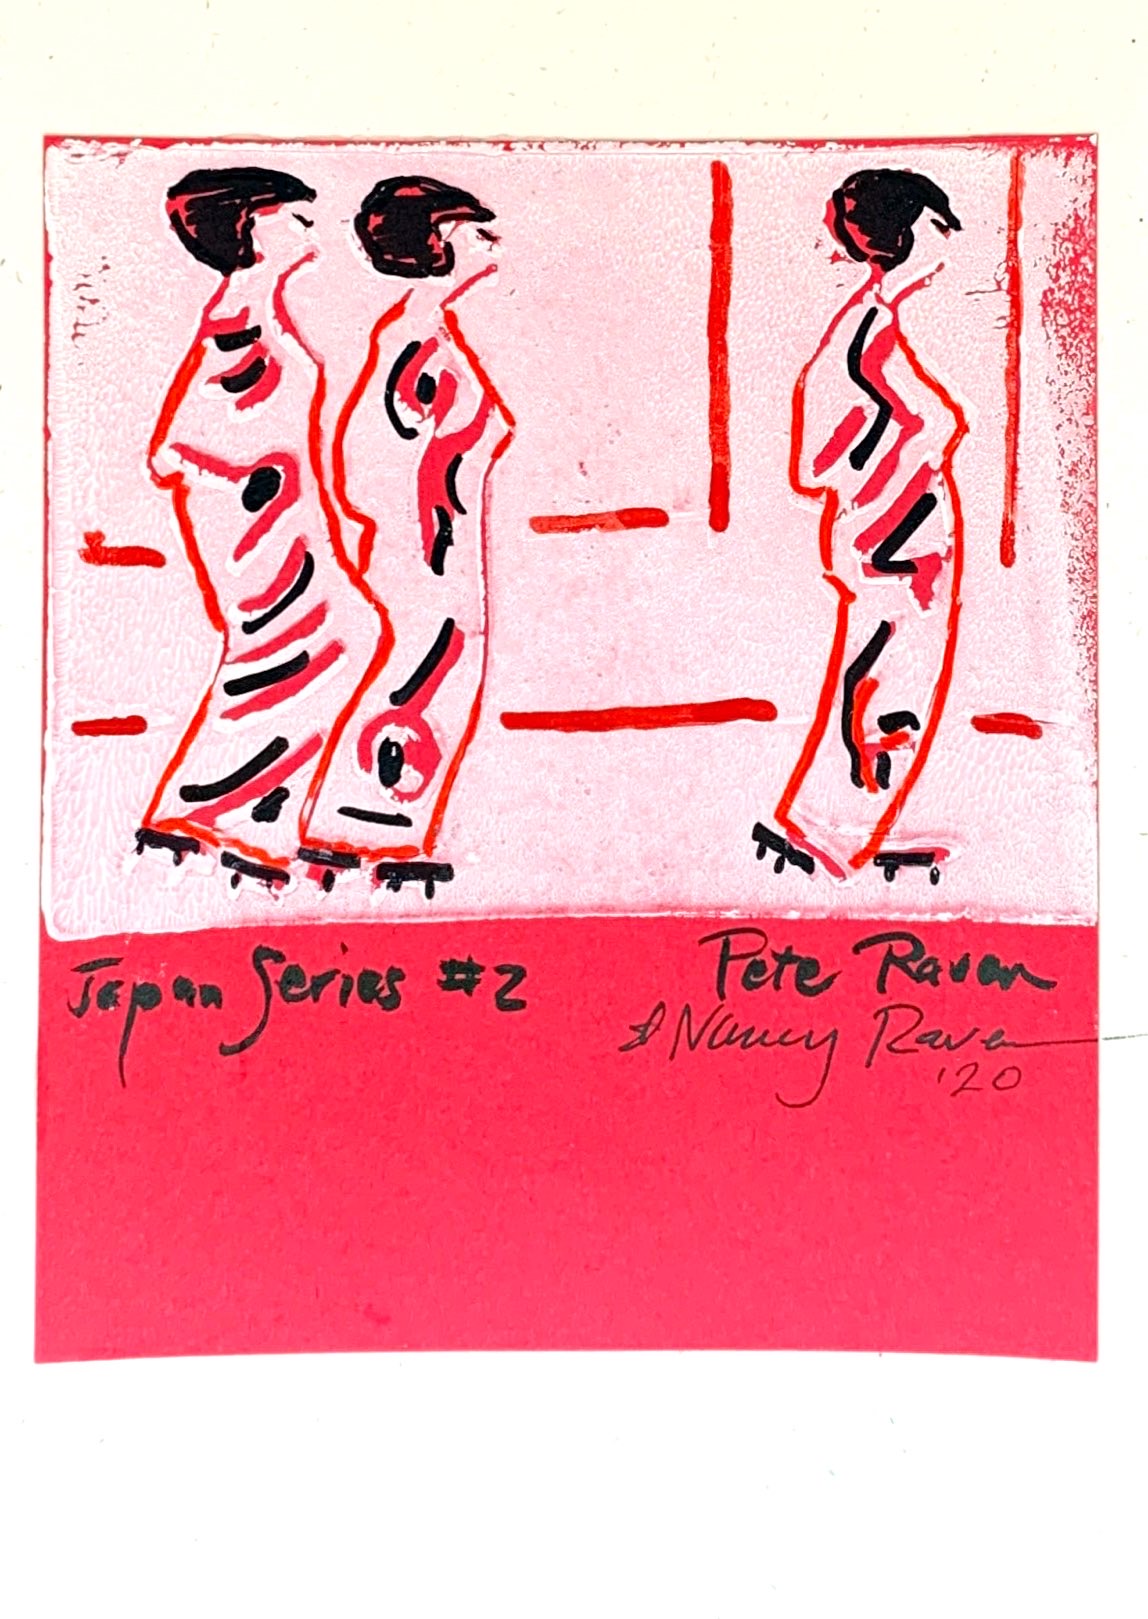 Japan Series #2
Pete Raven
& Nancy Raven
'20